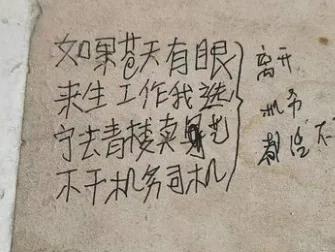 如果苍天有眼
来生工作我选
宁去青楼卖艺
不干机务司机
离开
机务
都活